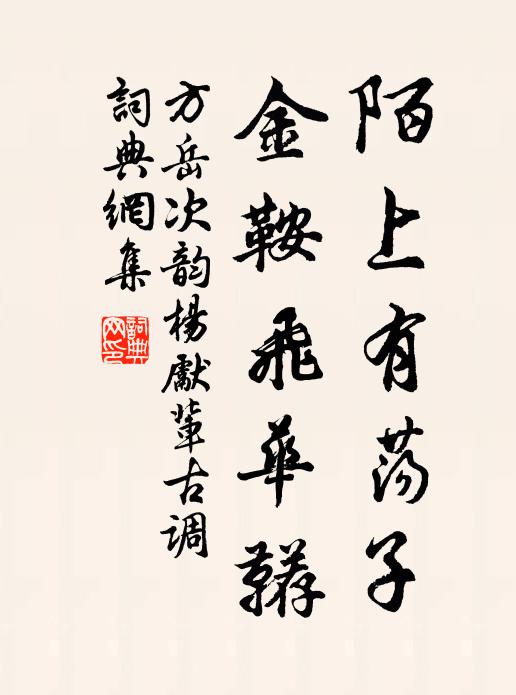 陌上有荡子
金鞍飛華韉
方岳次韵楊獻輩古调
詞典網集
詞典网印